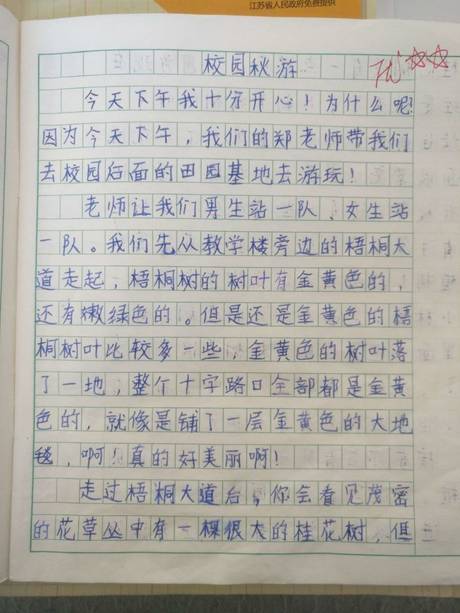 江苏省人民政府免费提供
校园秋游
优
今天下午我十分开心！为什么呢！
因为今天下午，我们的郑老师带我们
去校园后面的田园基地去游玩！
老师让我们男生站一队，女生站
一队。我们先从教学楼旁边的梧桐大
道走起，梧桐树的树叶有金黄色的，
还有嫩绿色的。但是还是金黄色的梧
桐树叶比较多一些，金黄色的树叶落
了一地，整个十字路口全部都是金黄
色的，就像是铺了一层金黄色的大地
毯，啊！真的好美丽啊！
走过梧桐大道后，你会看见茂密
的花草丛中有一棵很大的桂花树，但